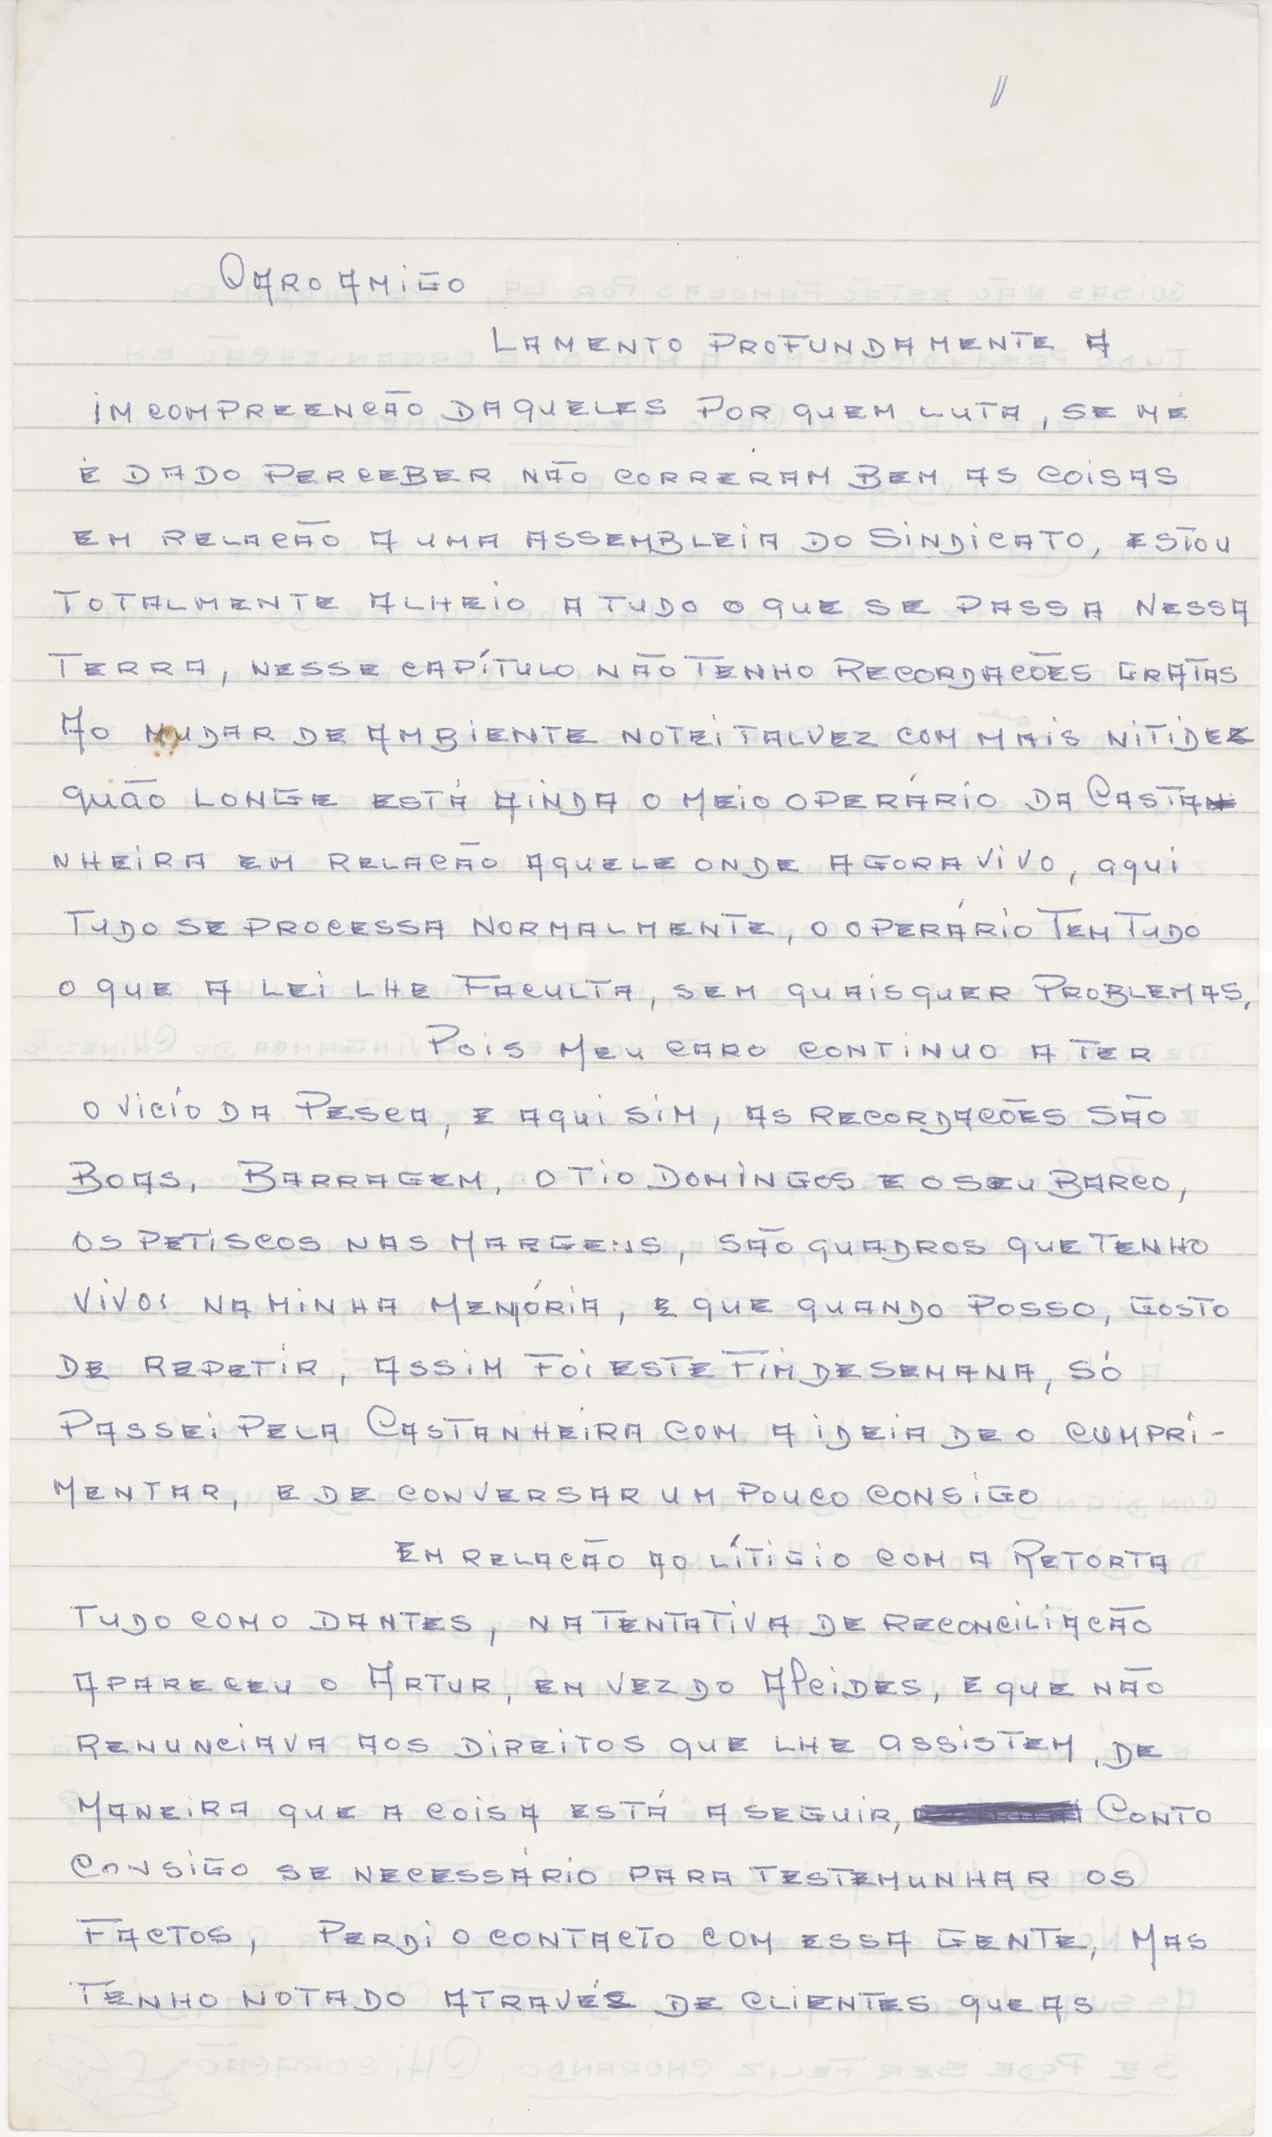 CARO AMIGO
LAMENTO PROFUNDAMENTE A
IMCOMPREENCÃO DAQUELES POR QUEM LUTA, SE ME
É DADO PERCEBER NÃO CORRERAM BEM AS COISAS
EM RELACÃO A UMA ASSEMBLEIA DO SINDICATO, ESTOU
TOTALMENTE ALHEIO A TUDO O QUE SE PASSA NESSA
TERRA, NESSE CAPÍTULO NÃO TENHO RECORDACÕES GRATAS
AO MUDAR DE AMBIENTE NOTEI TALVEZ COM MAIS NITIDEZ
QUÃO LONGE ESTÁ AINDA O MEIO OPERÁRIO DA CASTA
NHEIRA EM RELACÃO AQUELE ONDE AGORA VIVO, AQUI
TUDO SE PROCESSA NORMALMENTE, O OPERÁRIO TEM TUDO
O QUE A LEI LHE FACULTA, SEM QUAISQUER PROBLEMAS,
POIS MEU CARO CONTINUO A TER
O VICIO DA PESCA, E AQUI SIM, AS RECORDACÕES SÃO
BOAS, BARRAGEM, O TIO DOMINGOS E O SEU BARCO,
OS PETISCOS NAS MARGENS, SÃO QUADROS QUE TENHO
VIVOS NA MINHA MEMÓRIA, E QUE QUANDO POSSO, GOSTO
DE REPETIR, ASSIM FOI ESTE FIM DE SEMANA, SÓ
PASSEI PELA CASTANHEIRA COM A IDEIA DE O CUMPRI-
MENTAR, E DE CONVERSAR UM POUCO CONSIGO
EM RELACÃO AO LÍTIGIO COM A RETORTA
TUDO COMO DANTES, NA TENTATIVA DE RECONCILIACÃO
APARECEU O ARTUR, EM VEZ DO ALCIDES, E QUE NÃO
RENUNCIAVA AOS DIREITOS QUE LHE ASSISTEM, DE
MANEIRA QUE A COISA ESTÁ A SEGUIR, CONTO
CONSIGO SE NECESSÁRIO PARA TESTEMUNHAR OS
FACTOS, PERDI O CONTACTO COM ESSA GENTE, MAS
TENHO NOTADO ATRAVÉS DE CLIENTES QUE AS